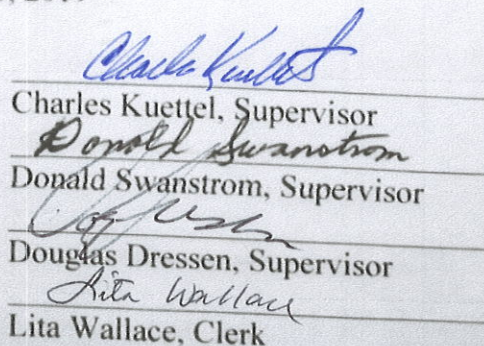 Charles Kuettel
Charles Kuettel, Supervisor
Donald Swanstrom
Donald Swanstrom, Supervisor
Douglas Dressen, Supervisor
Lita Wallace
Lita Wallace, Clerk